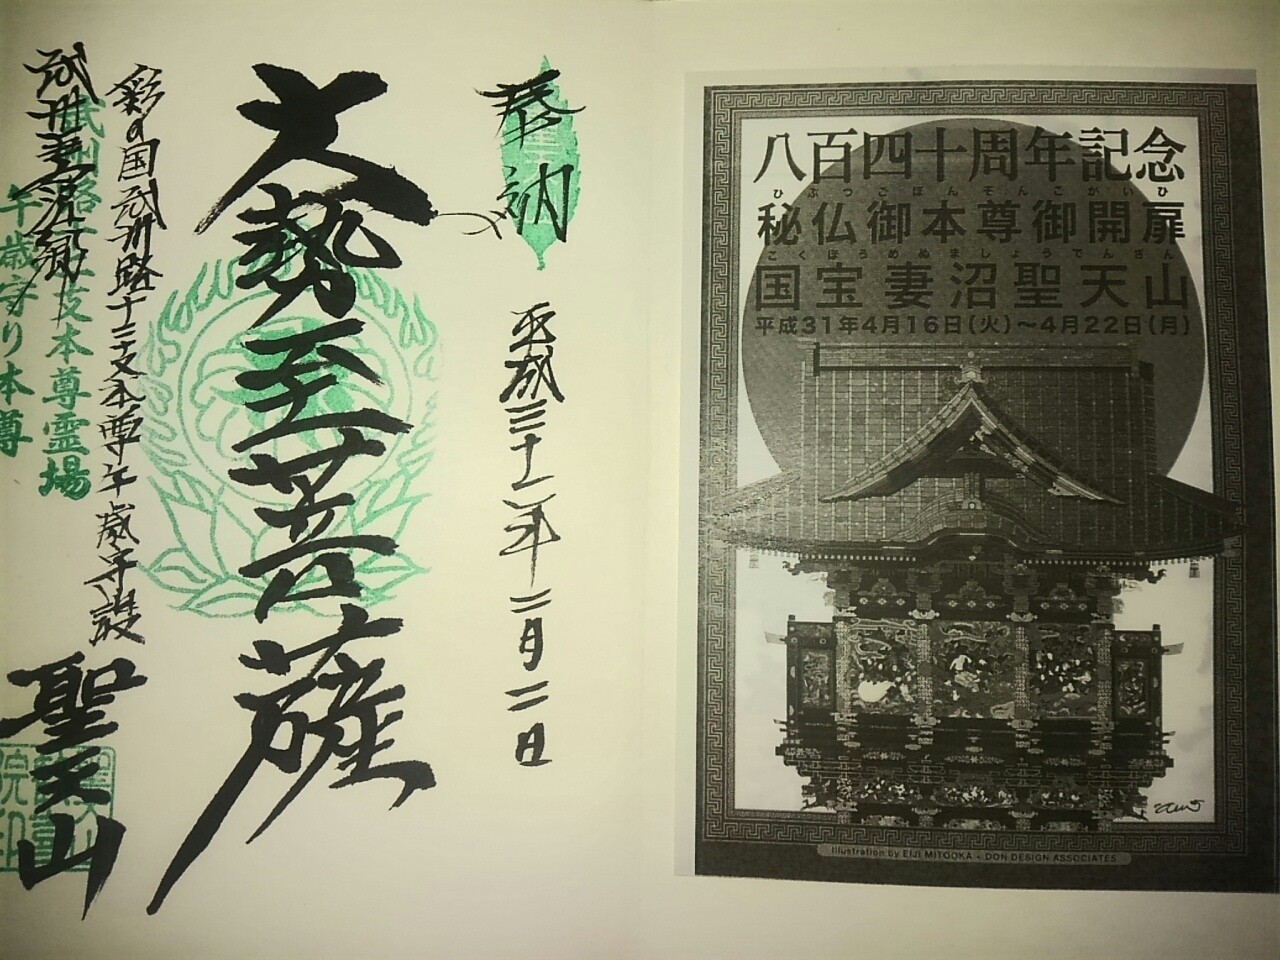 奉納
平成三十一年二月二日
大勢至菩薩
彩の国武州路十二支本尊午歳守護
聖天山
十二支本尊霊場
午歳守り本尊
八百四十周年記念
ひぶつごほんぞんごかいひ
秘仏御本尊御開扉
こくほうめぬましょうでんざん
国宝妻沼聖天山
平成31年4月16日(火)～4月22日(月)
Illustration by EIJI MITOOKA + DON DESIGN ASSOCIATES